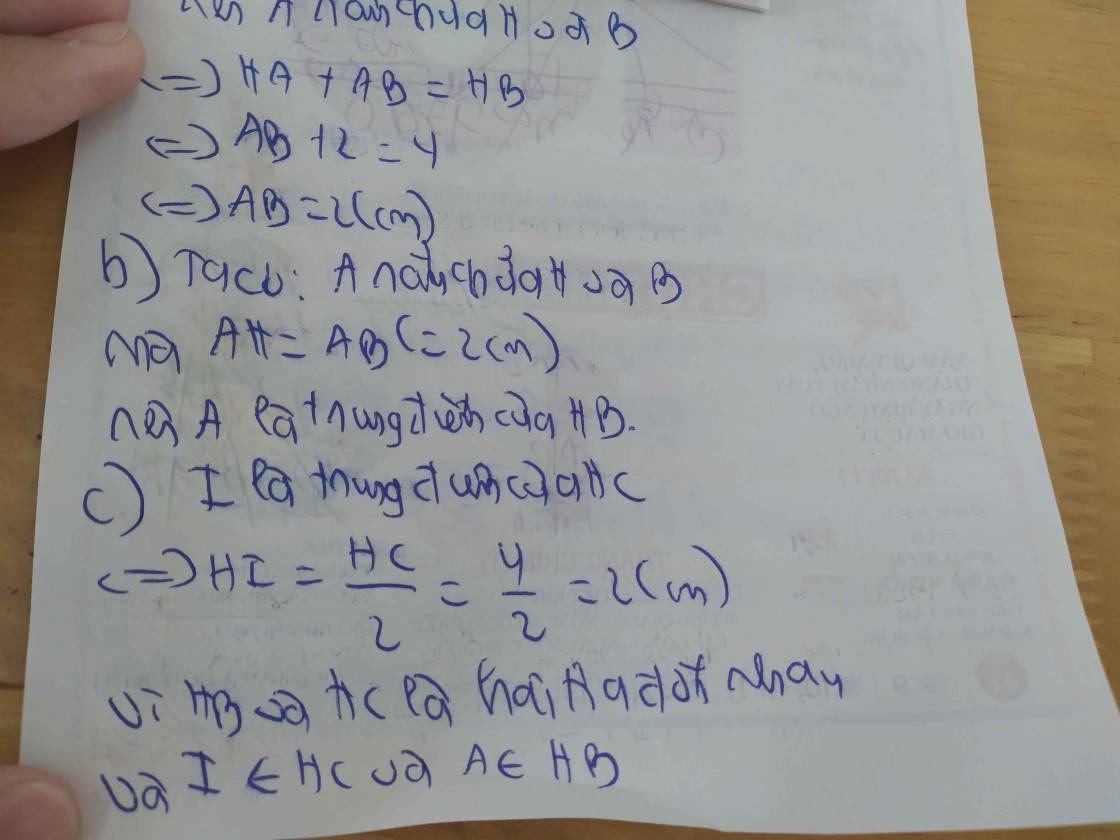 nên A nằm giữa H và B
<=> HA + AB = HB
<=> AB + 2 = 4
<=> AB = 2(cm)
b) Ta có: A nằm giữa H và B
mà AH = AB (= 2cm)
nên A là trung điểm của HB.
c) I là trung điểm của HC
<=> HI = HC/2 = 4/2 = 2(cm)
Vì HB và HC là hai tia đối nhau
và I ∈ HC và A ∈ HB